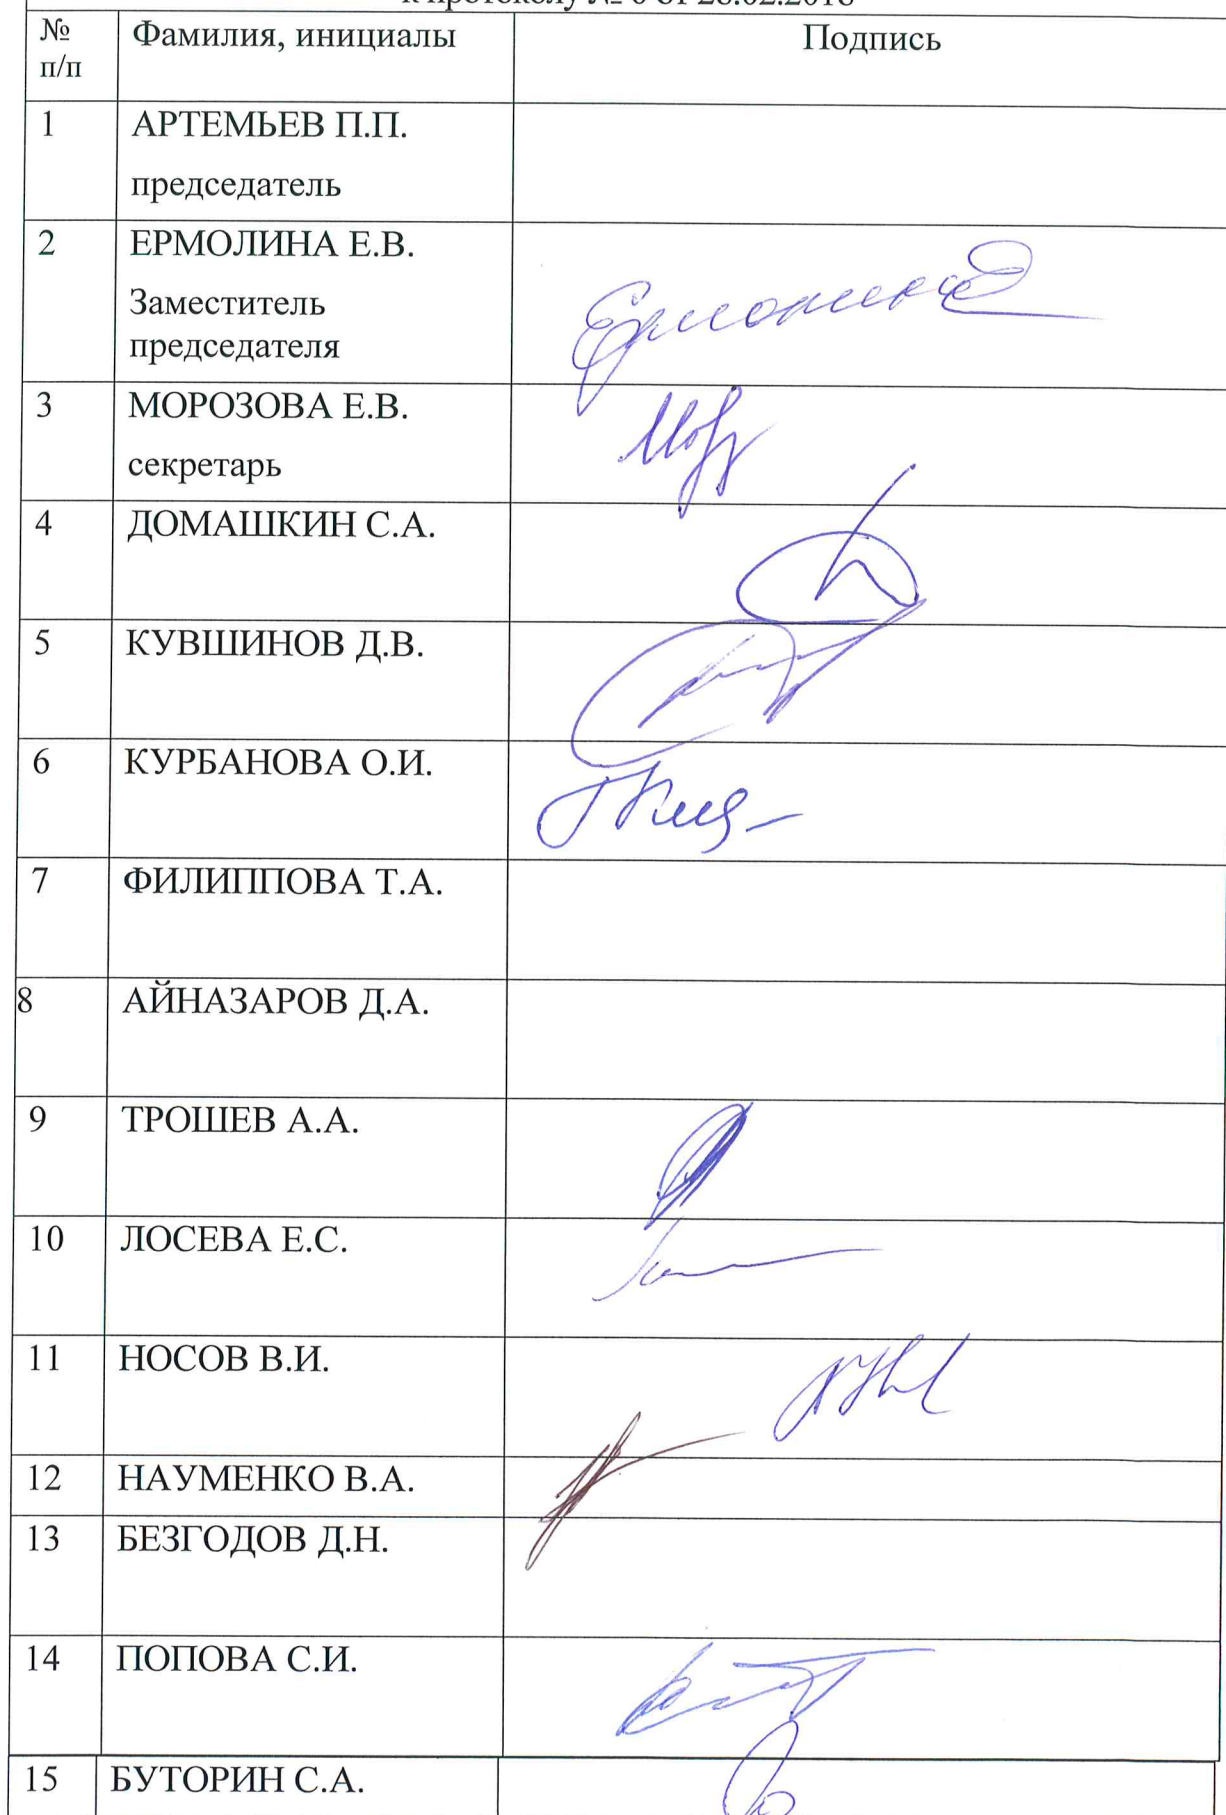 к протоколу № 6 от 28.02.2018
№ Фамилия, инициалы Подпись
п/п
1 АРТЕМЬЕВ П.П.
председатель
2 ЕРМОЛИНА Е.В.
Заместитель
председателя
Ермолина
3 МОРОЗОВА Е.В.
секретарь
4 ДОМАШКИН С.А.
5 КУВШИНОВ Д.В.
6 КУРБАНОВА О.И.
7 ФИЛИППОВА Т.А.
8 АЙНАЗАРОВ Д.А.
9 ТРОШЕВ А.А.
10 ЛОСЕВА Е.С.
11 НОСОВ В.И.
12 НАУМЕНКО В.А.
13 БЕЗГОДОВ Д.Н.
14 ПОПОВА С.И.
15 БУТОРИН С.А.